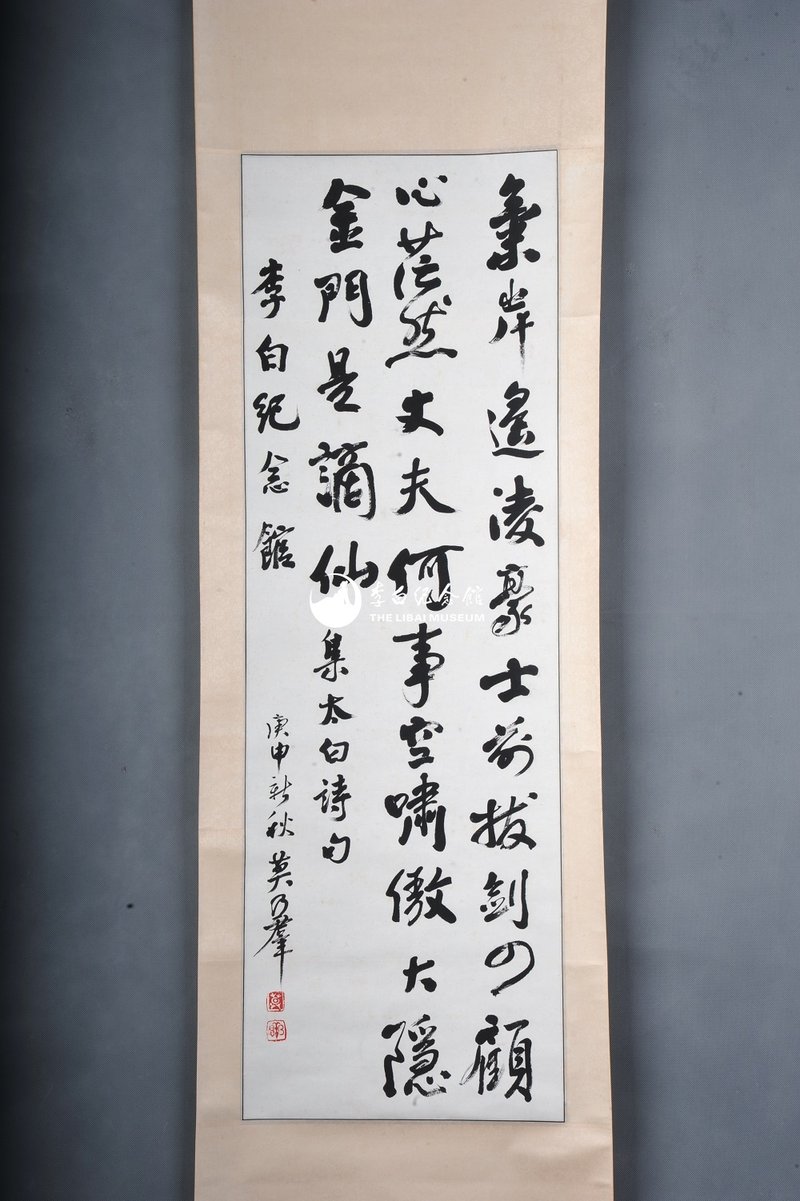 氣岸遥凌豪士前拔劍四顧
心茫然丈夫何事空嘯傲大隱
金門是謫仙集太白詩句
李白纪念館
庚申新秋莫乃羣
李白纪念館
THE LIBAI MUSEUM